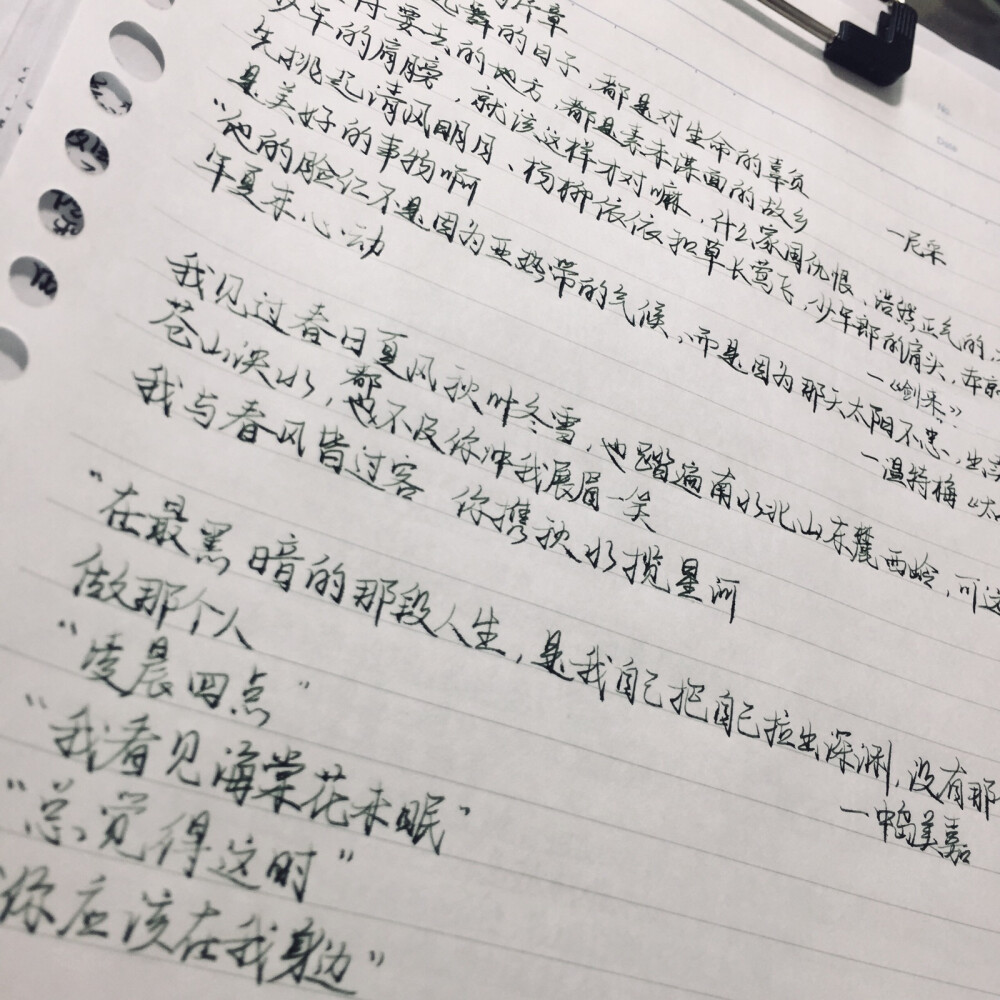 的片章
起舞的日子，都是对生命的辜负
一尼采
要去的地方，都是素未谋面的故乡
少年的肩膀，就该这样才对嘛，什么家国仇恨、浩然正气的，
先挑起清风明月、杨柳依依和草长莺飞，少年郎的肩头，本
是美好的事物啊
一《剑来》
“他的脸红不是因为亚热带的气候，而是因为那天太阳不忠，
年夏来心动
一温特梅《太
我见过春日夏风秋叶冬雪，也踏遍南水北山东麓西岭，可这
苍山泱水，都不及你冲我展眉一笑
我与春风皆过客 你携秋水揽星河
“在最黑暗的那段人生，是我自己把自己拉出深渊，没有那
做那个人
一中岛美嘉
“凌晨四点”
“我看见海棠花未眠”
“总觉得这时”
你应该在我身边”
No.
Date